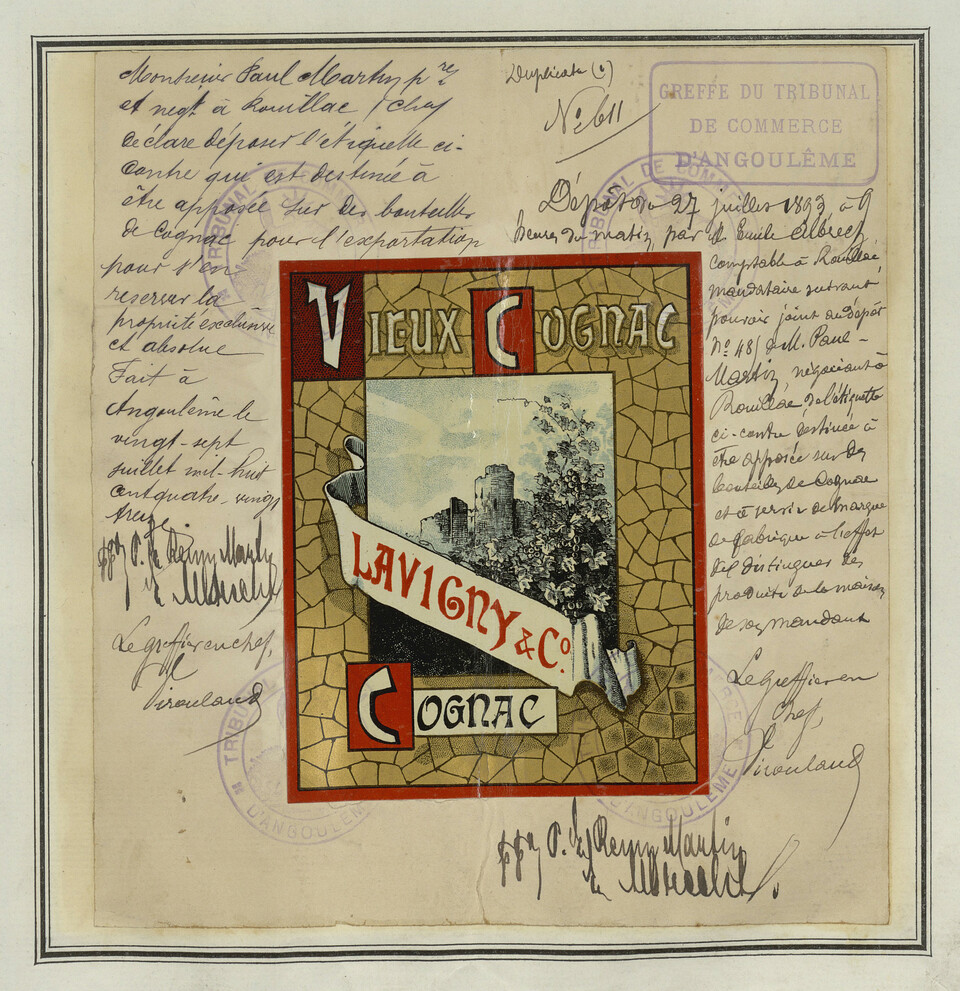 Monsieur Paul Martin p^re
et negt à Rouillac (Ch
déclare déposer l'étiquette ci-
contre qui est destinée à
être apposée sur des bouteilles
de Cognac pour l'exportation
pour s'en
reserver la
propriété exclusive
et absolue
Fait à
Angoulême le
vingt-sept
juillet mil-huit
cent quatre-vingt
treize
P. Remy Martin
Le greffier en chef,
Duplicata
No 611
GREFFE DU TRIBUNAL
DE COMMERCE
D'ANGOULÊME
Déposé 27 juillet 1893 à 9
heures du matin par M. Emile
comptable à Rouillac
mandataire suivant
pouvoir joint au dépôt
No 481 de M. Paul-
Martin, négociant à
Rouillac de l'étiquette
ci-contre destinée à
être apposée sur des
bouteilles de Cognac
et à servir de marque
de fabrique à l'effet
de distinguer les
produits de la maison
de son mandant
Le Greffier en
Chef,
P. Remy Martin
VIEUX COGNAC
LAVIGNY & Co.
COGNAC
TRIBUNAL DE COMMERCE
D'ANGOULEME